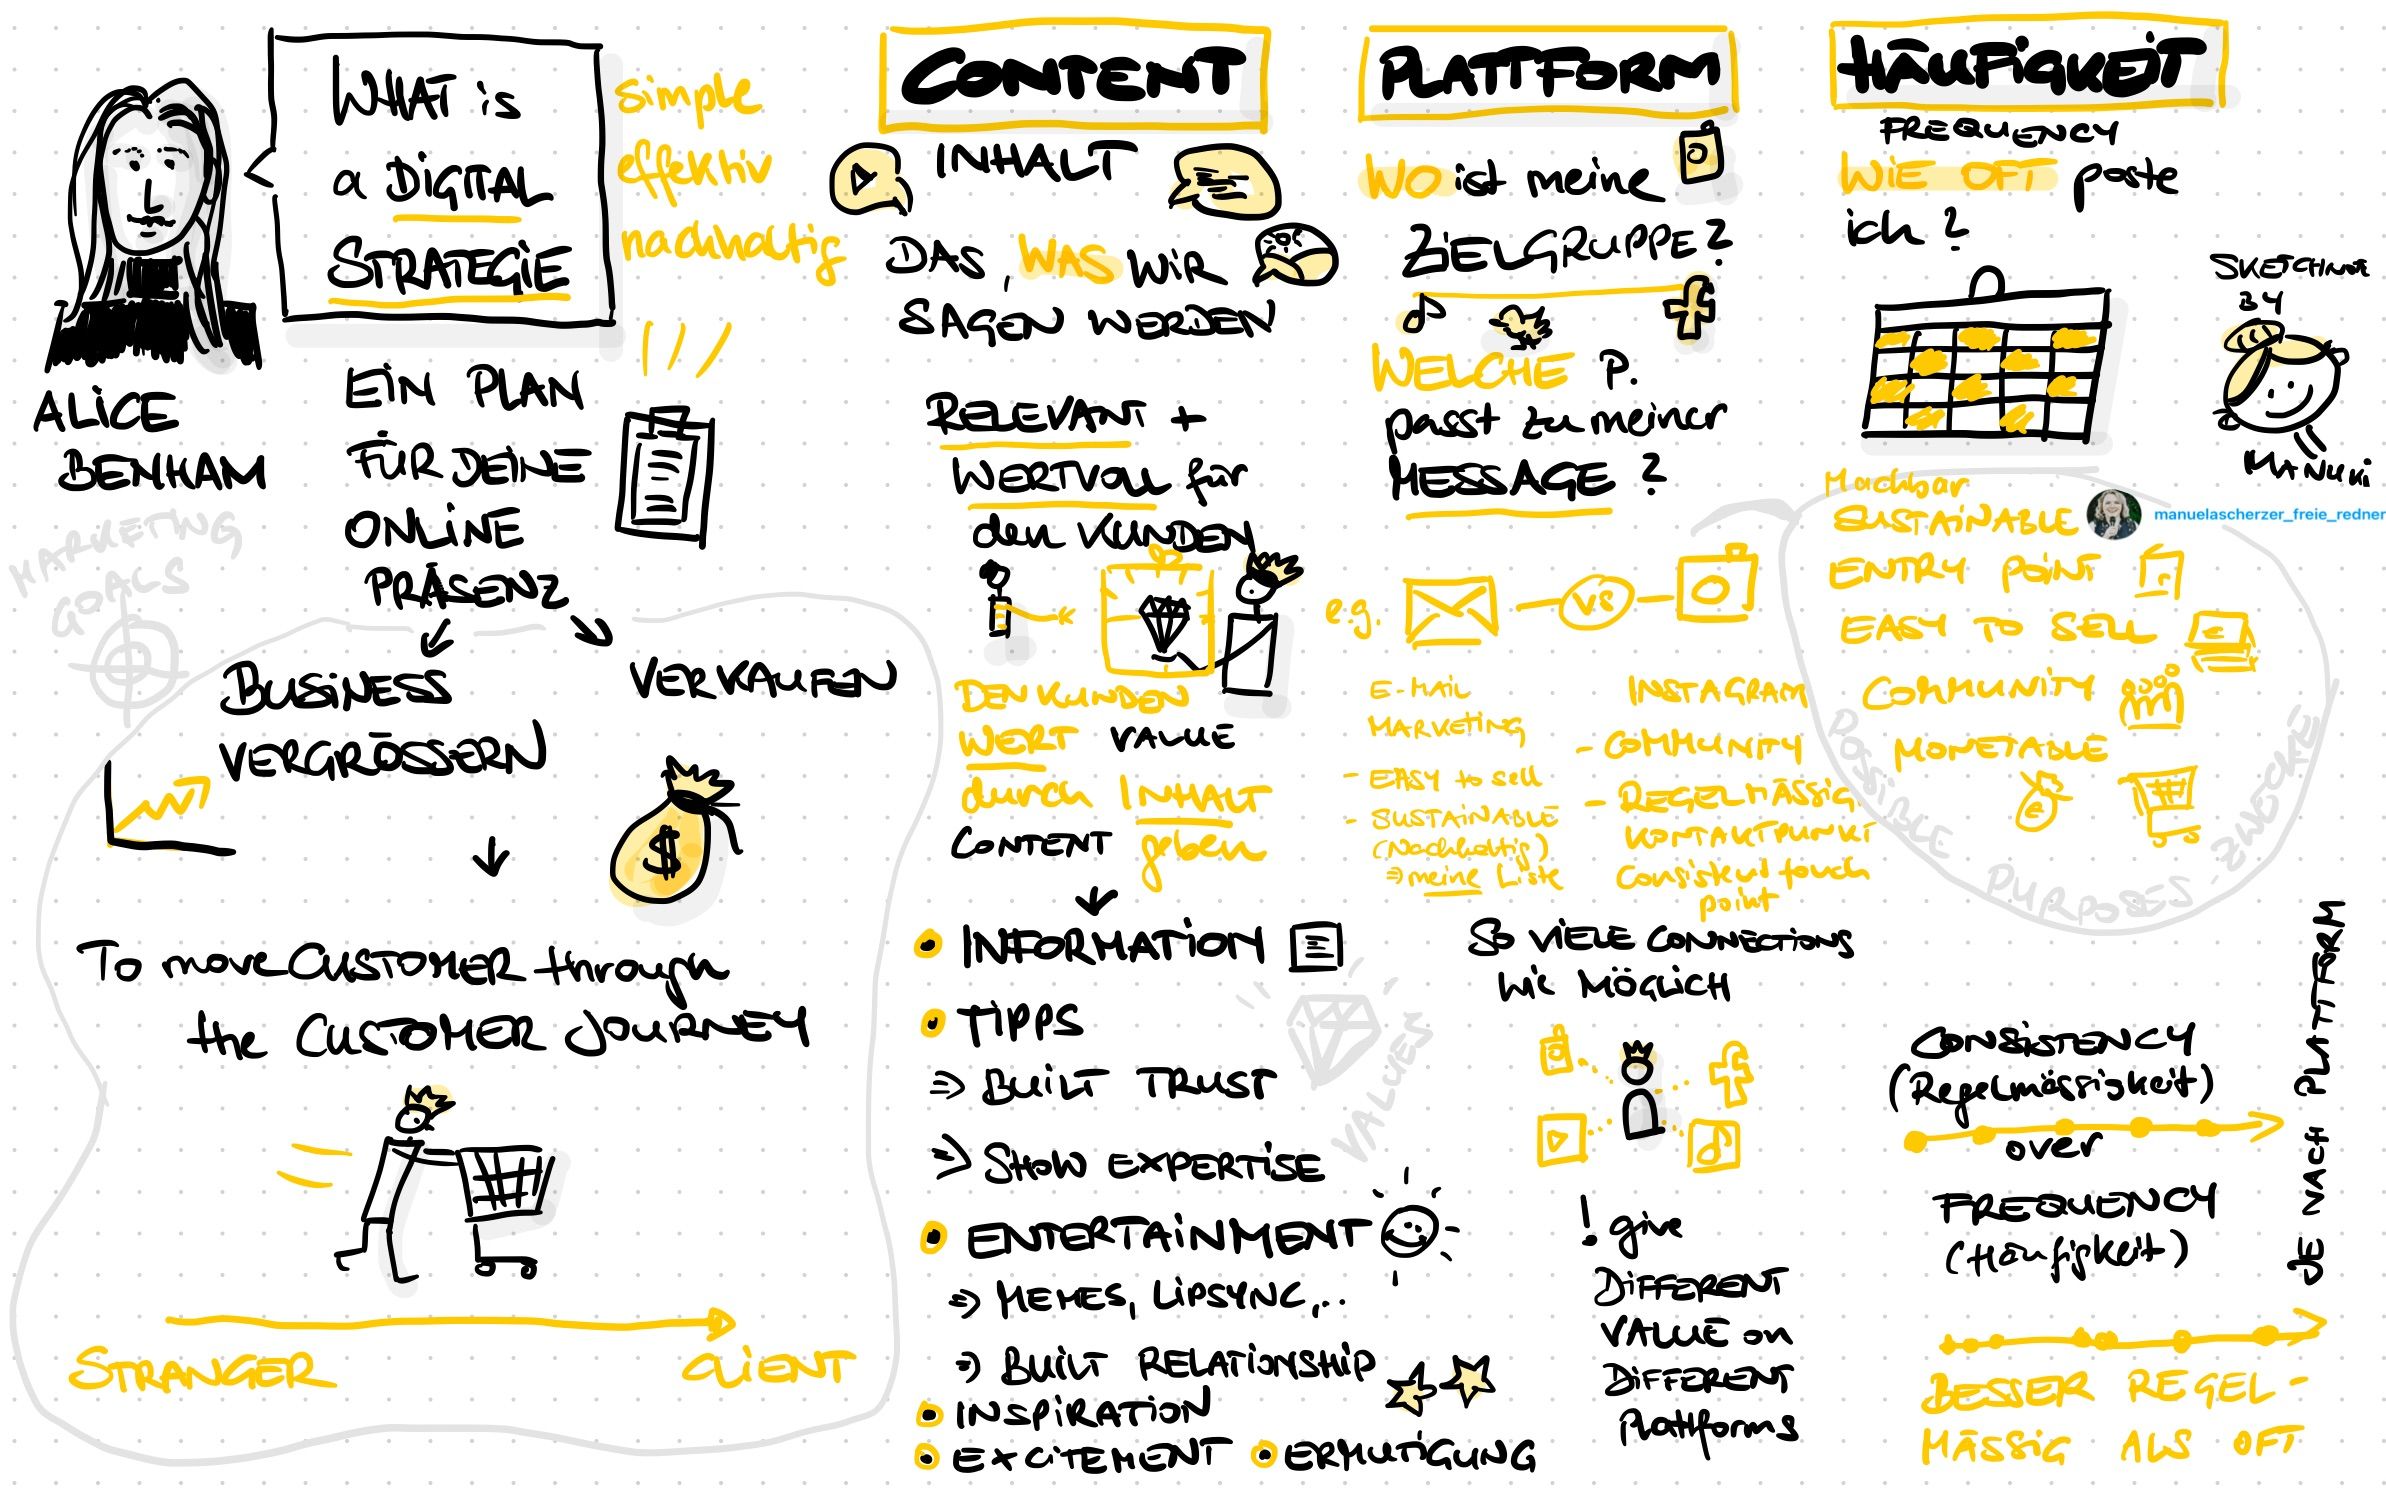 WHAT is
a DIGITAL
STRATEGIE
simple
effektiv
nachhaltig
ALICE
BENHAM
EIN PLAN
FÜR DEINE
ONLINE
PRÄSENZ
MARKETING
GOALS
BUSINESS
VERGRÖSSERN
VERKAUFEN
$
To move CUSTOMER through
the CUSTOMER JOURNEY
STRANGER
CLIENT
CONTENT
INHALT
DAS, WAS WIR
SAGEN WERDEN
RELEVANT +
WERTVOLL für
den KUNDEN
DEN KUNDEN
WERT VALUE
durch INHALT
CONTENT geben
INFORMATION
TIPPS
⇒ BUILT TRUST
⇒ SHOW EXPERTISE
VALUES
ENTERTAINMENT
⇒ MEMES, LIPSYNC,..
⇒ BUILT RELATIONSHIP
INSPIRATION
EXCITEMENT
ERMUTIGUNG
PLATTFORM
WO ist meine
ZIELGRUPPE?
WELCHE P.
passt zu meiner
MESSAGE?
e.g.
VS
E-MAIL
MARKETING
- EASY to sell
- SUSTAINABLE
(Nachhaltig)
⇒ meine Liste
INSTAGRAM
- COMMUNITY
- REGELMÄSSIG.
KONTAKTPUNKT
Consistent touch
point
SO VIELE CONNECTIONS
WIE MÖGLICH
! give
DIFFERENT
VALUE on
DIFFERENT
Plattforms
HÄUFIGKEIT
FREQUENCY
WIE OFT poste
ich?
SKETCHNOTE
BY
MANUKI
Machbar
SUSTAINABLE
manuelascherzer_freie_redner
ENTRY POINT
EASY TO SELL
COMMUNITY
MONETABLE
POSSIBLE PURPOSES - ZWECKE
CONSISTENCY
(Regelmässigkeit)
over
FREQUENCY
(Häufigkeit)
JE NACH PLATTFORM
BESSER REGEL-
MÄSSIG ALS OFT